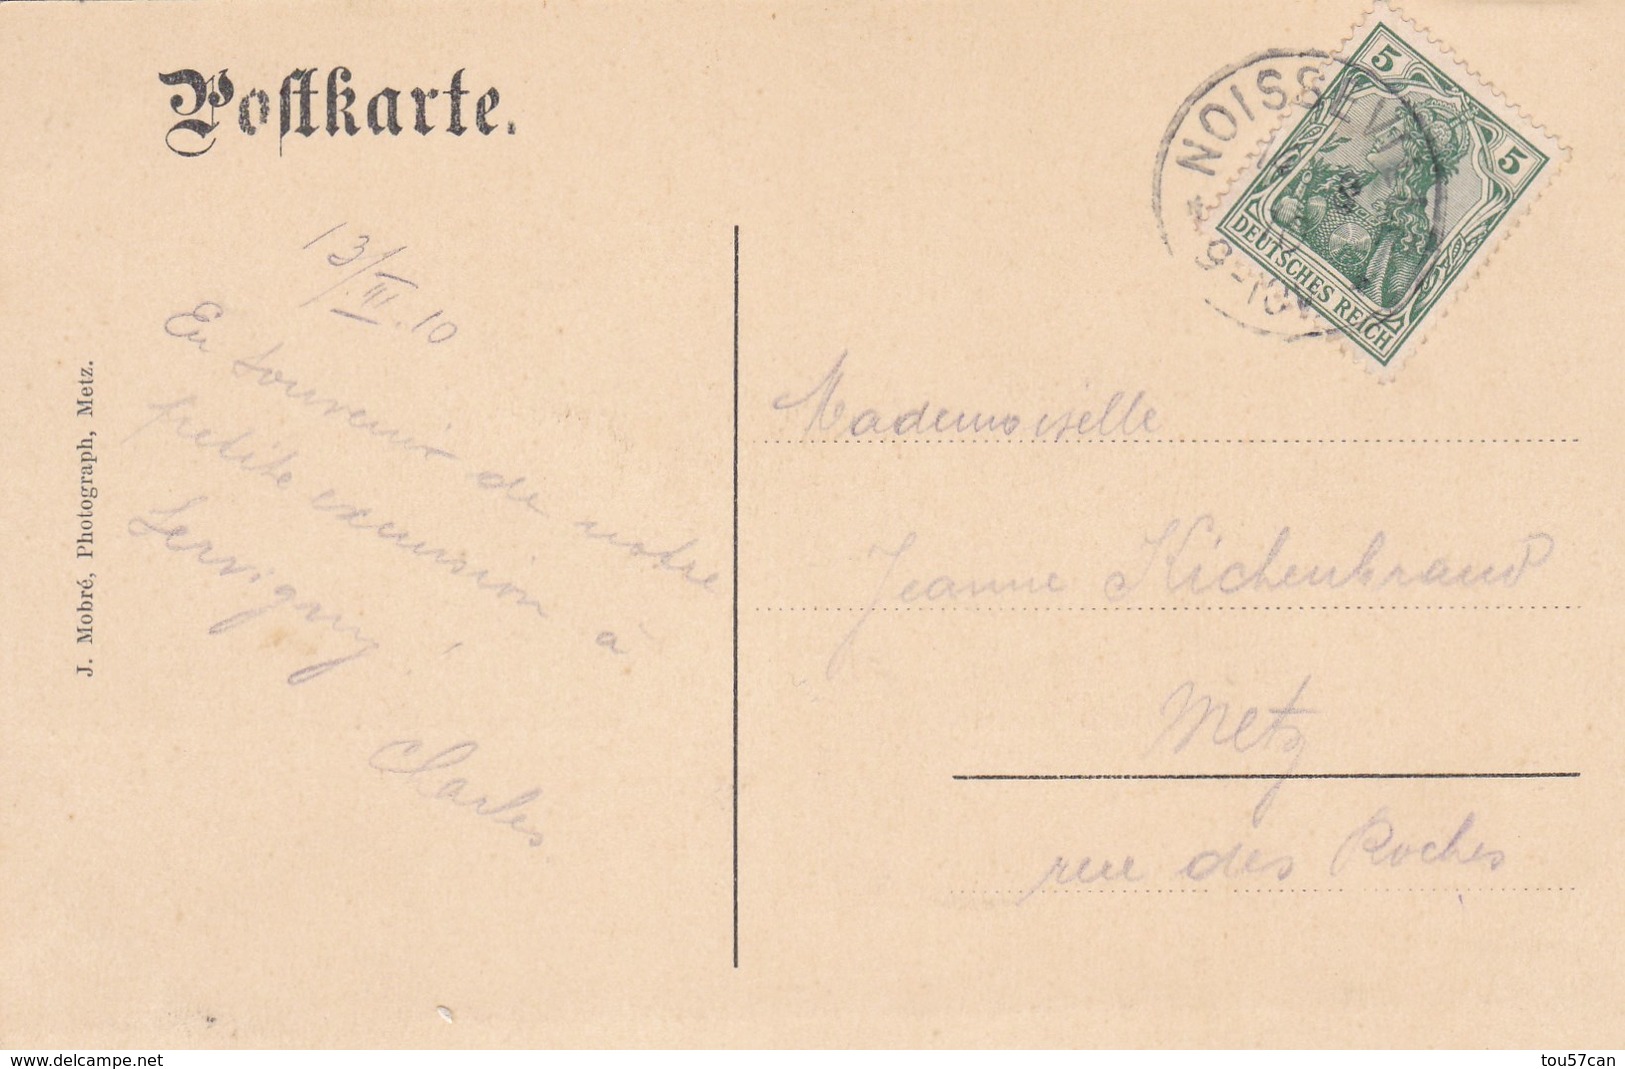 Postkarte.
13/III.10
En souvenir de notre
petite excursion à
Servigny !
Charles
J. Mobré, Photograph, Metz.
NOISSEVI
9-10V
5
5
DEUTSCHES REICH
Mademoiselle
Jeanne Kichenbrand
Metz
rue des Roches
delcampe.net
tou57can